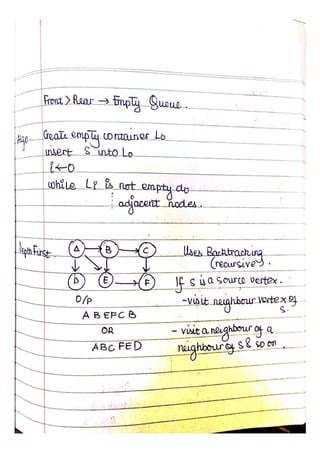 Front > Rear → Empty Queue.
Algo. Create empty container Lo
insert S into Lo
i ← 0
while Li is not empty do
⋮ adjacent nodes.
Depth First.
A B C
D E F
Uses Backtracking
(recursive).
If S is a source vertex.
- visit neighbour vertex of
S.
- visit a neighbour of a
neighbour of S & so on.
O/P
A B E F C B
OR
ABC FED